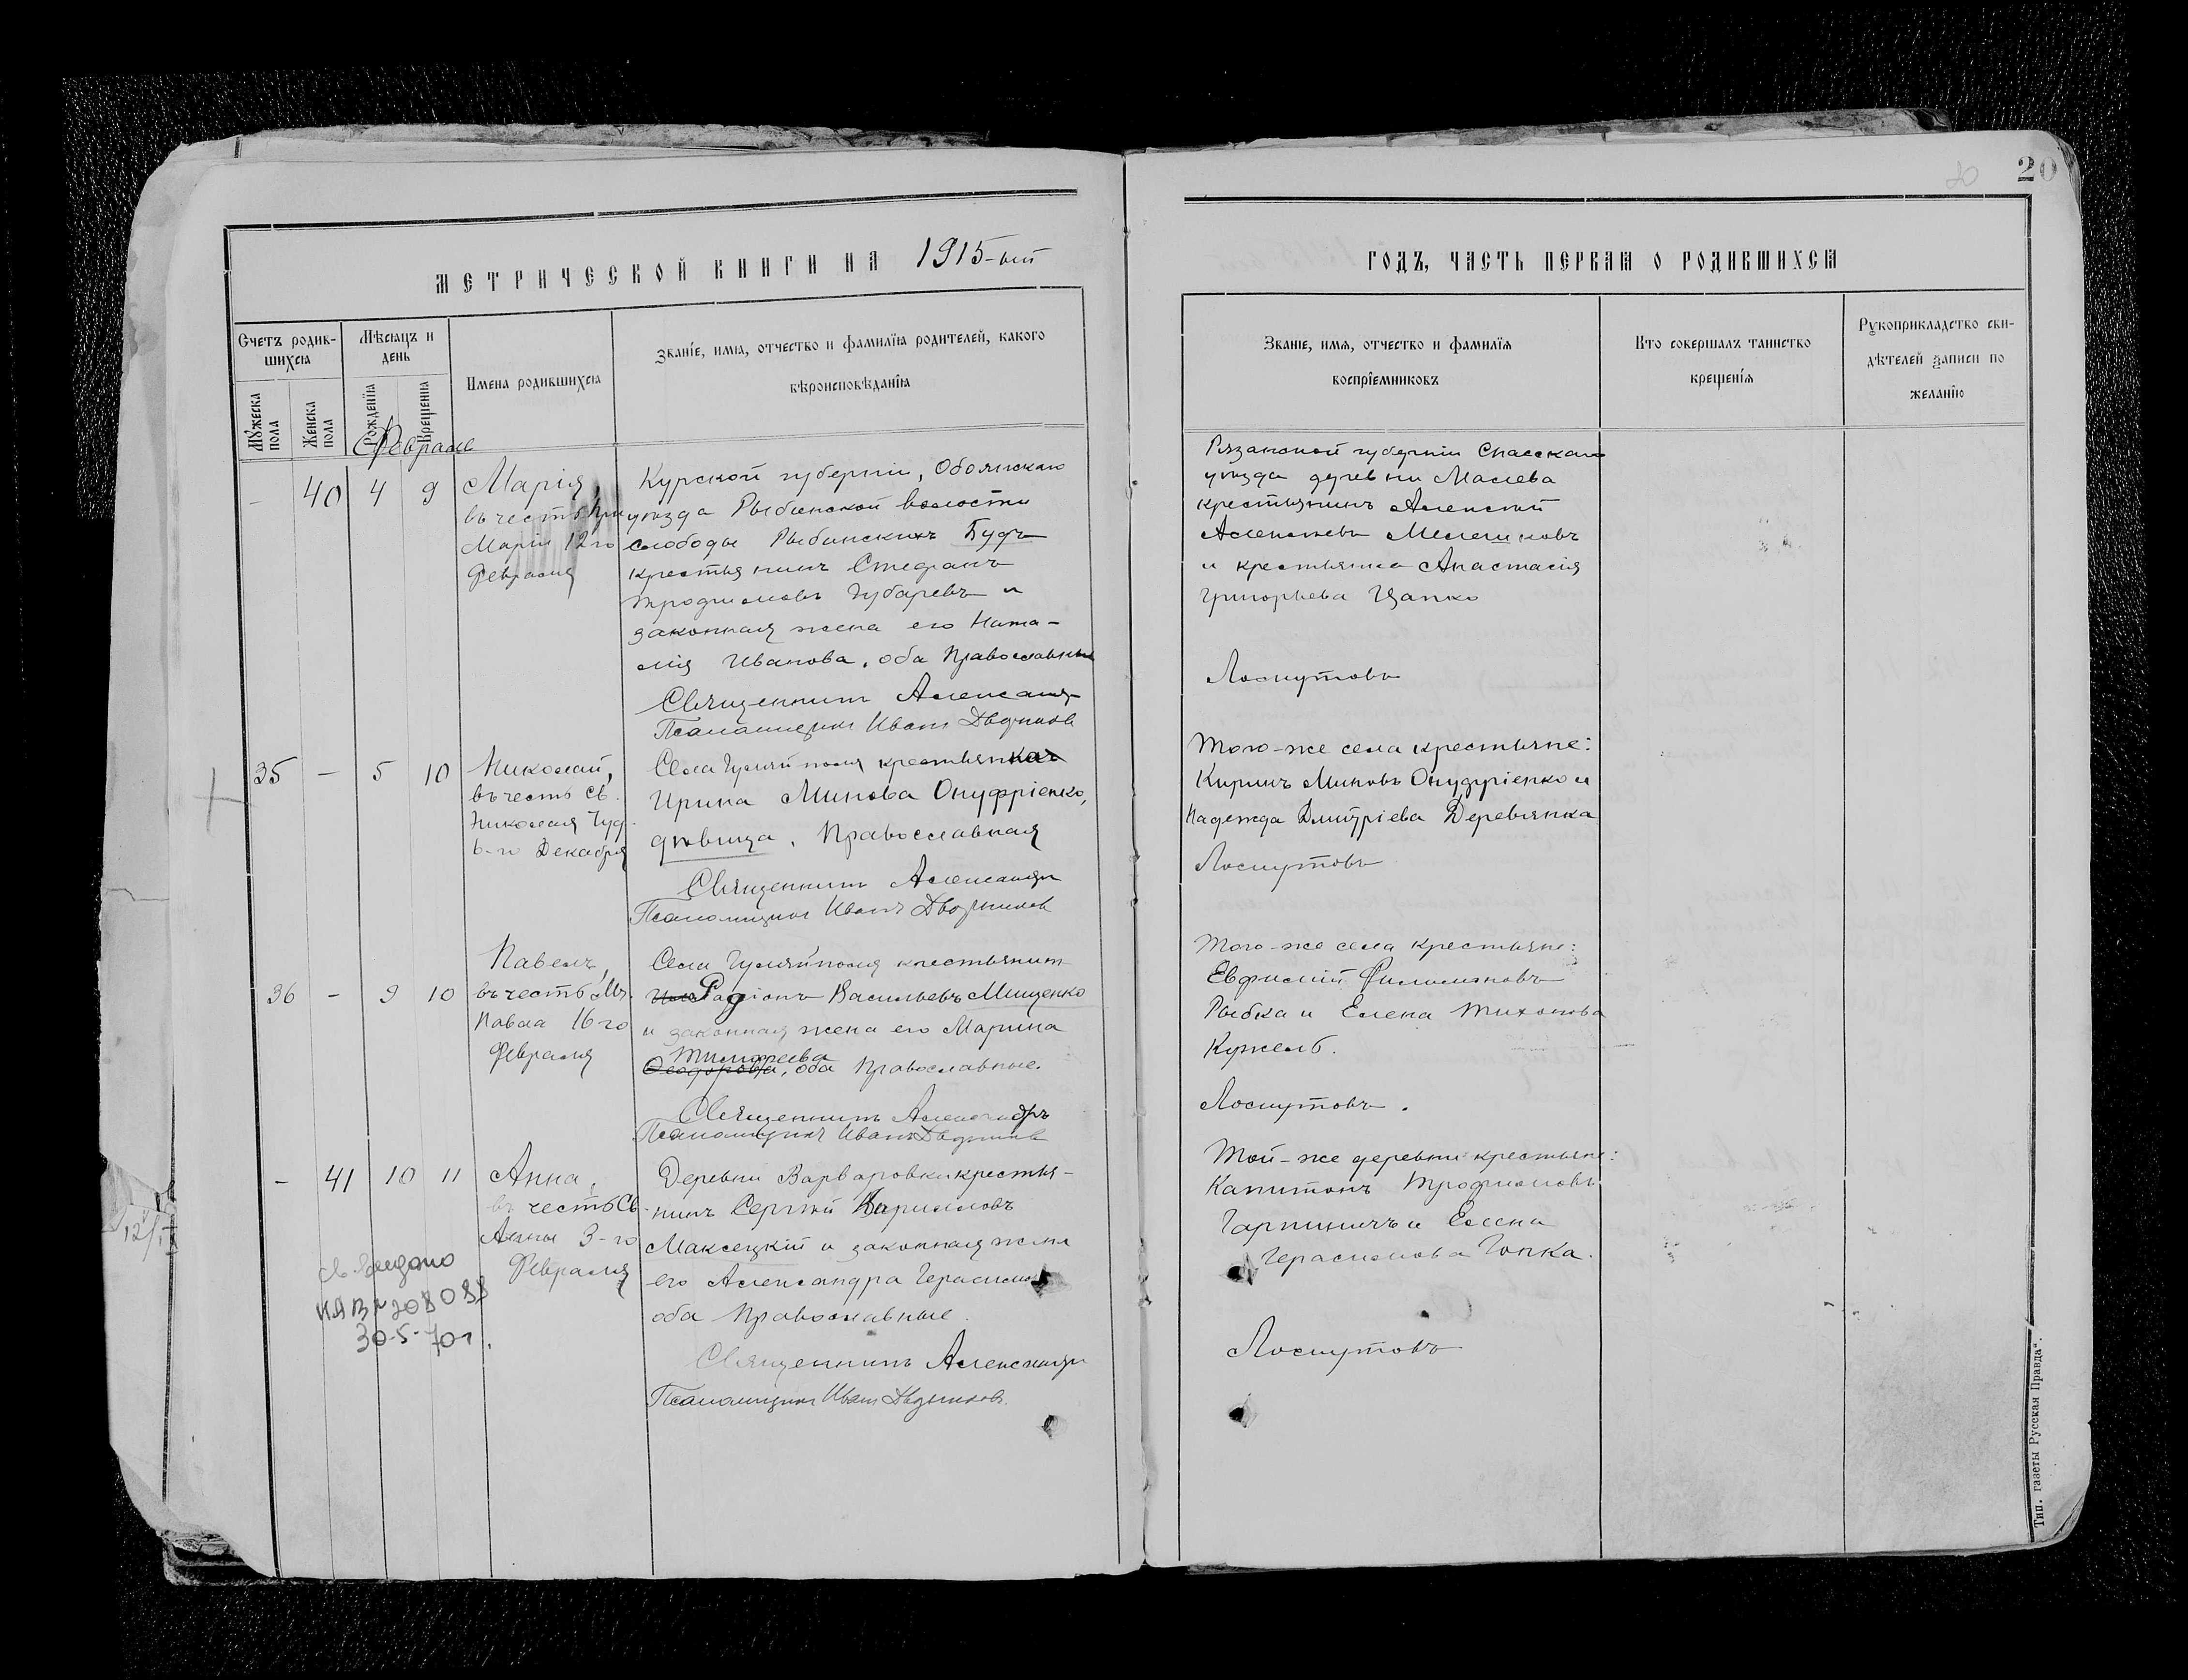 20
20
МЕТРИЧЕСКОЙ КНИГИ НА 1915-ый
ГОДЪ, ЧАСТЬ ПЕРВАЯ О РОДИВШИХСЯ
Счетъ родив-
шихся
Мужеска пола
Женска пола
Мѣсяцъ и
день
Рожденія
Крещенія
Имена родившихся
Званіе, имя, отчество и фамилія родителей, какого
вѣроисповѣданія
Званіе, имя, отчество и фамилія
воспріемниковъ
Кто совершалъ таинство
крещенія
Рукоприкладство сви-
дѣтелей записи по
желанію
Февраль
- 40 4 9
Марія,
въ честь Пр.
Маріи 12го
Февраля
Курской губерніи, Обоянскаго
уѣзда Рыбинской волости
слободы Рыбинскихъ Будъ
крестьянинъ Стефанъ
Трофимовъ Губаревъ и
законная жена его Ната-
лія Иванова, оба Православные
Священникъ Александръ
Псаломщикъ Иванъ Дворниковъ
Рязанской губерніи Спасскаго
уѣзда деревни
крестьянинъ Алексѣй
Алексѣевъ
и крестьянка Анастасія
Григорьева Цапко
Лоскутовъ
35 - 5 10
Николай,
въ честь Св.
Николая Чуд.
6-го Декабря
Села Гуляйполя крестьянка
Ирина Минова Онуфріенко,
дѣвица, Православная
Священникъ Александръ
Псаломщикъ Иванъ Дворниковъ
Того-же села крестьяне:
Кирикъ Миновъ Онуфріенко и
Надежда Дмитріева Деревянка
Лоскутовъ
36 - 9 10
Павелъ,
въ честь Мч.
Павла 16го
Февраля
Села Гуляйполя крестьянинъ
Родіонъ Васильевъ Мищенко
и законная жена его Марина
Тимофеева
Феодорова, оба Православные.
Священникъ Александръ
Псаломщикъ Иванъ Дворниковъ
Того-же села крестьяне:
Евфимій Филимоновъ
Рыбка и Елена Тихонова
Кужель.
Лоскутовъ.
- 41 10 11
Анна,
въ честь Св.
Анны 3-го
Февраля
Деревни Варваровки крестья-
нинъ Сергѣй Карпиловъ
Максецкій и законная жена
его Александра Герасимова
оба Православные.
Священникъ Александръ
Псаломщикъ Иванъ Дворниковъ.
Той-же деревни крестьяне:
Капитонъ Трофимовъ
и Елена
Герасимова Гопка.
Лоскутовъ
12/
выдано
208088
30-5-70г.
Тип. газеты „Русская Правда“.